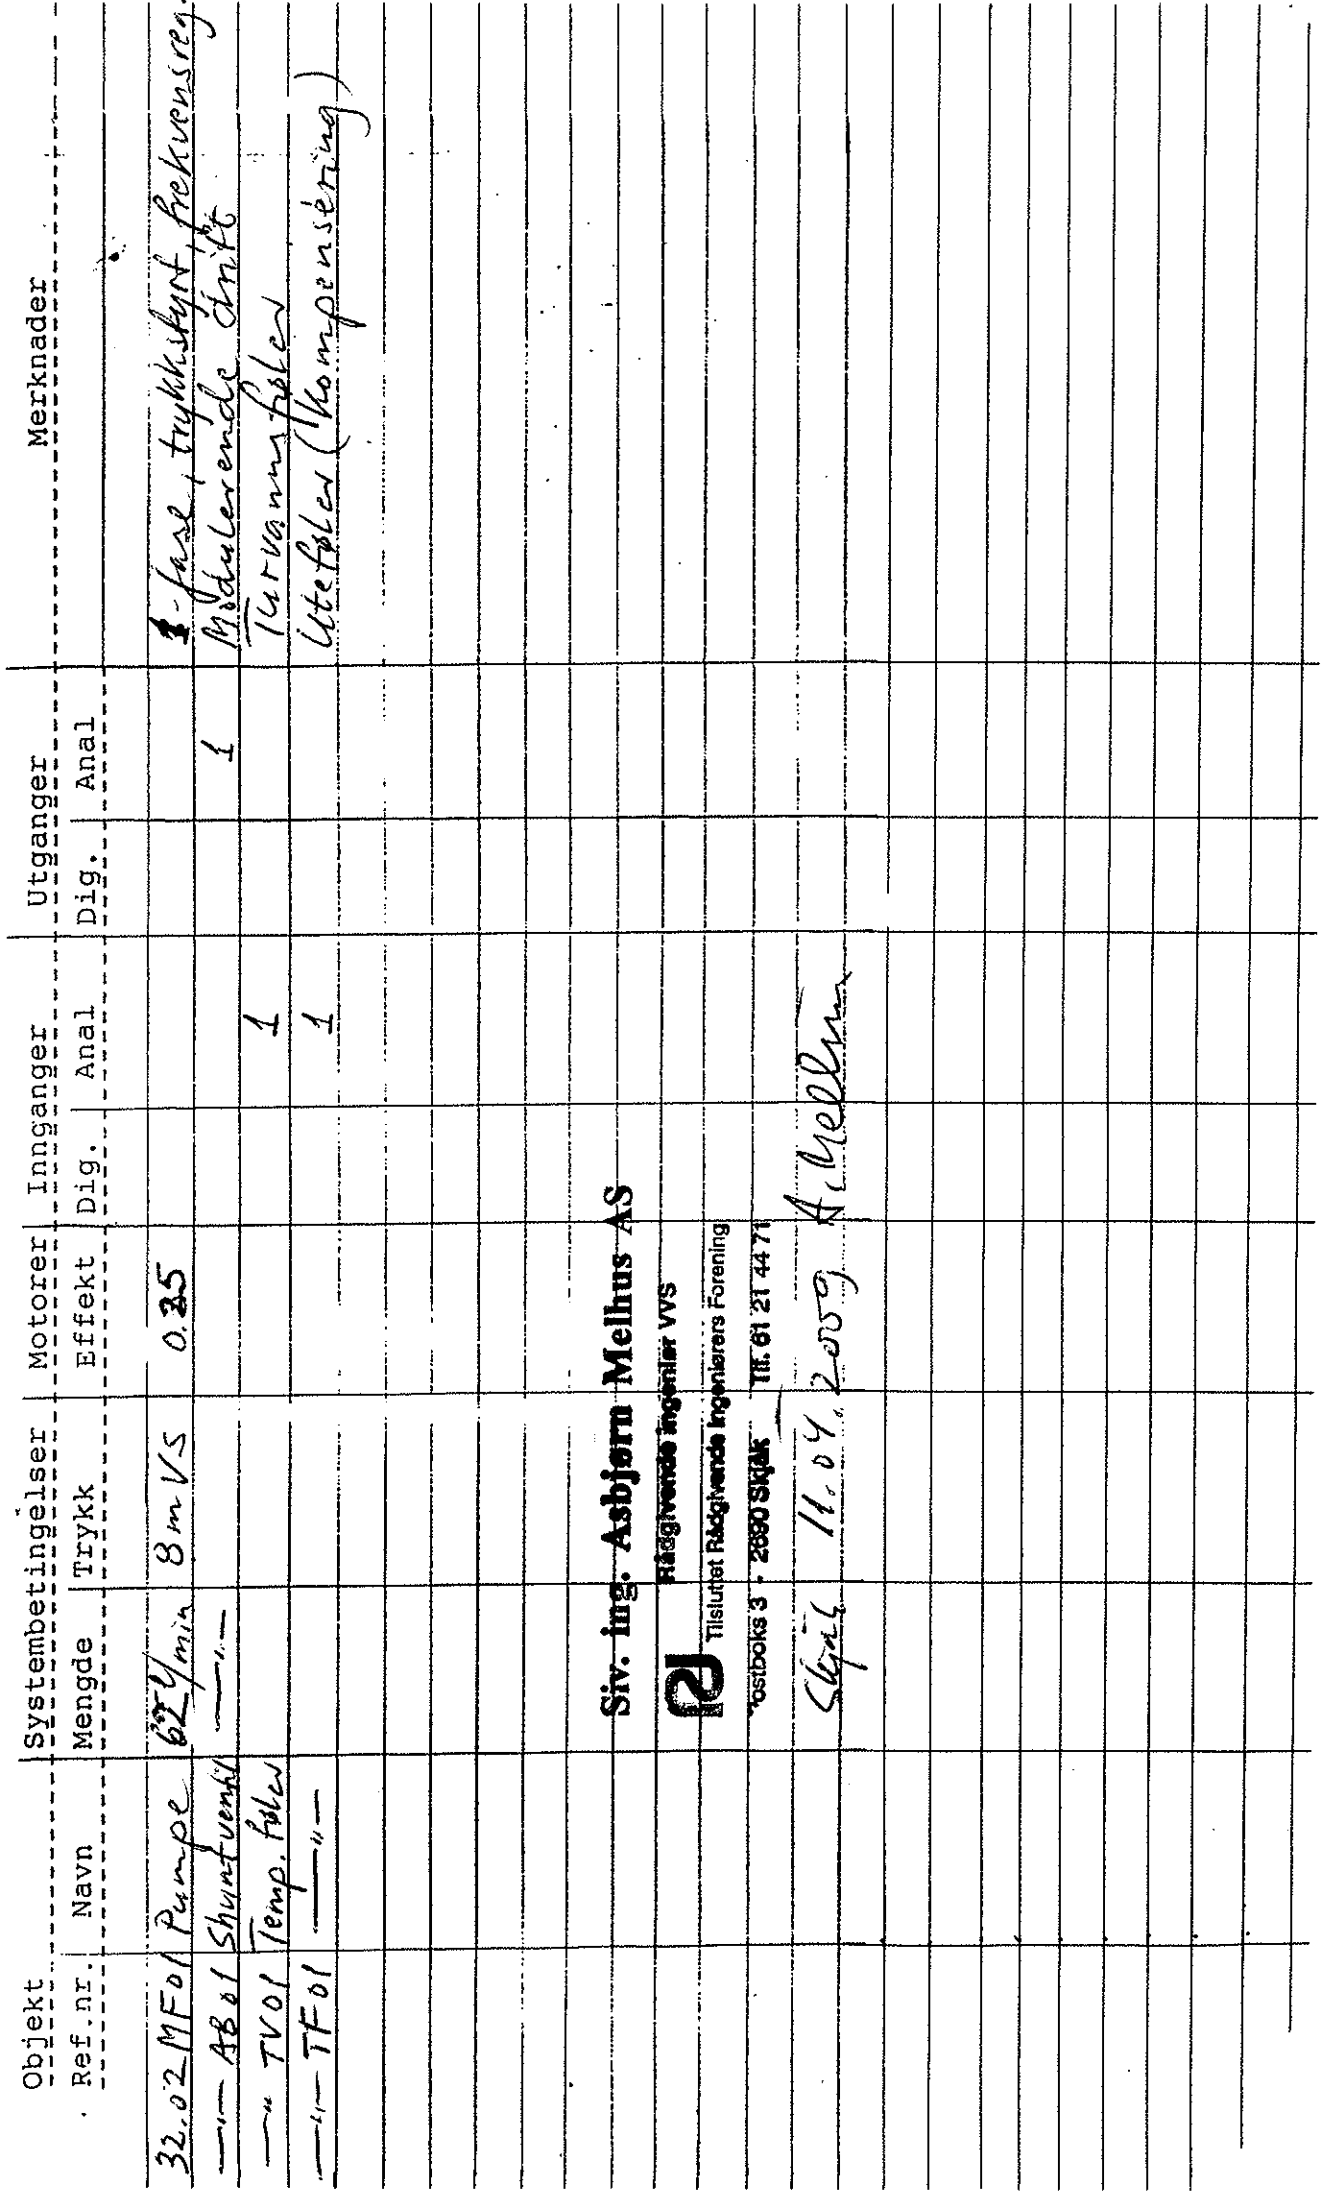 Objekt Systembetingelser Motorer Innganger Utganger Merknader
Ref.nr. Navn Mengde Trykk Effekt Dig. Anal Dig. Anal
32.02 MF01 Pumpe 62 l/min 8 mVS 0.25 1-fase, trykkstyrt, frekvensreg.
—"— AB01 Shuntventil —"— 1 Modulerende drift
—"— TV01 Temp.føler 1 Turvannsføler
—"— TF01 —"— 1 Uteføler (kompensering)
Siv. ing. Asbjørn Melhus AS
Rådgivende ingeniør VVS
Tilsluttet Rådgivende Ingeniørers Forening
Postboks 3 - 2690 Skjåk Tlf. 61 21 44 71
Skjåk 11.04.2009 A. Melhus